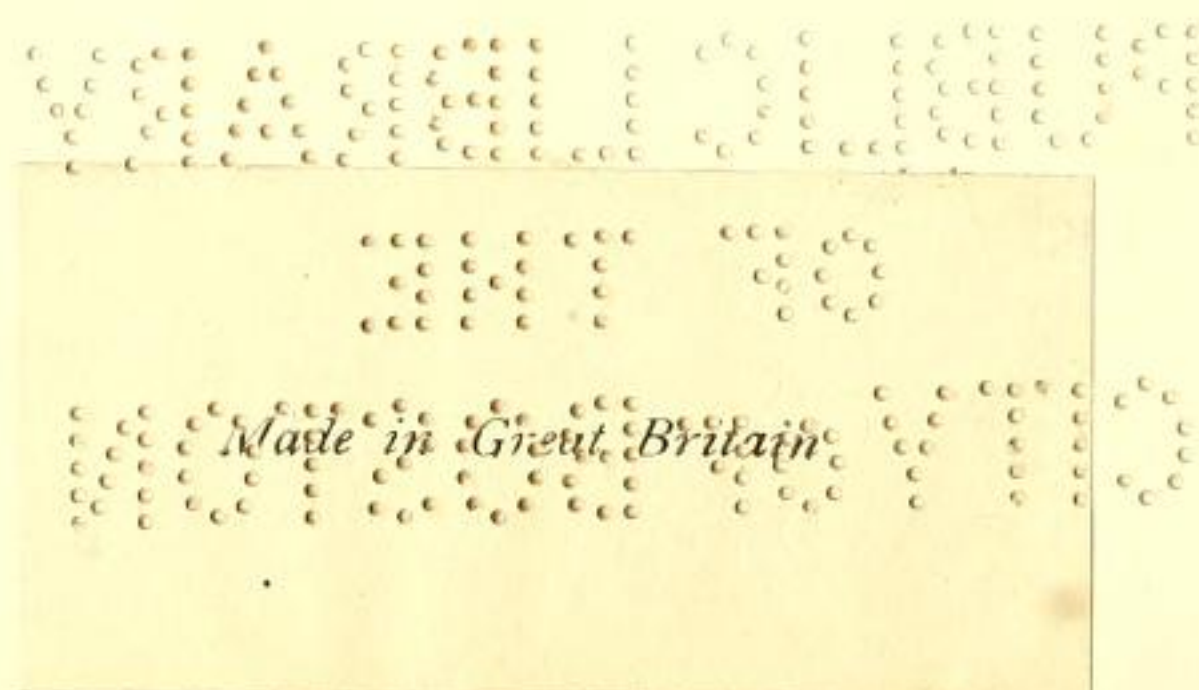 PUBLIC LIBRARY
OF THE
CITY OF BOSTON
Made in Great Britain